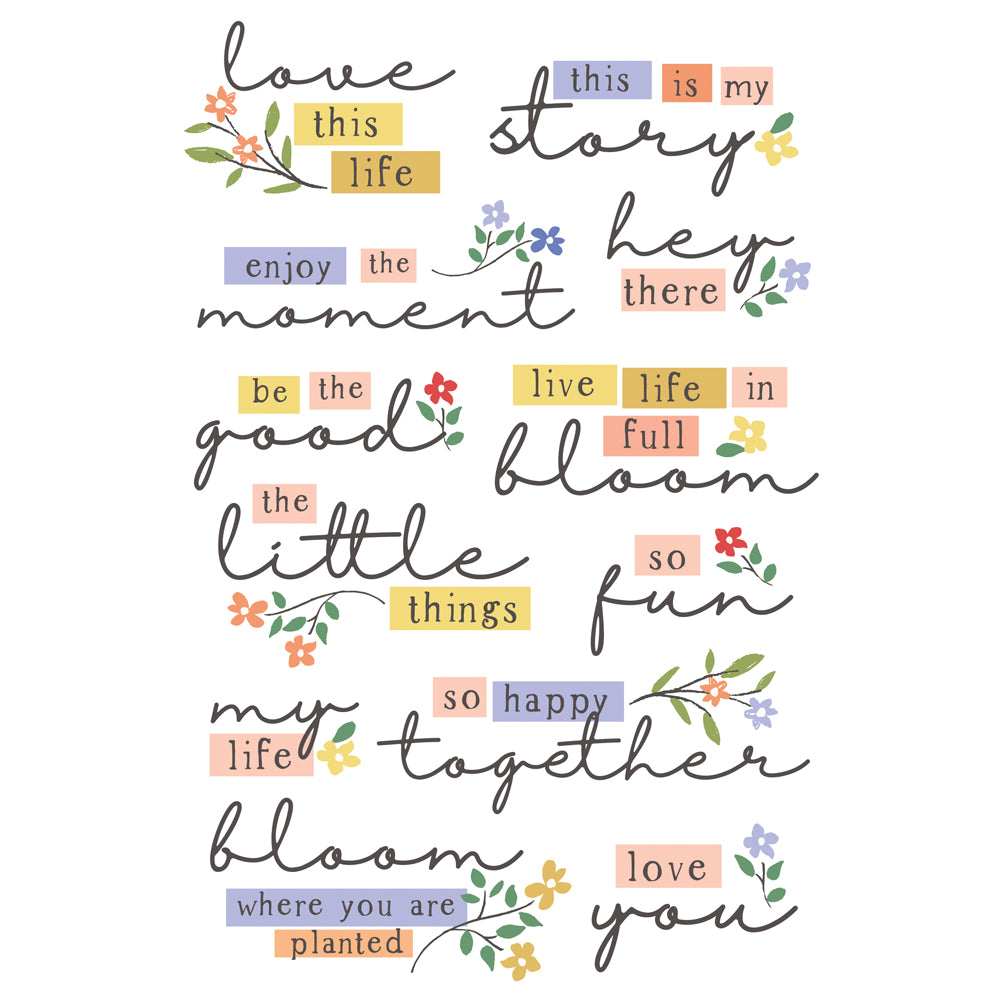 love
this
life
this is my
story
enjoy the
moment
hey
there
be the
good
live life in
full
bloom
the
little
things
so
fun
my
life
so happy
together
bloom
where you are
planted
love
you